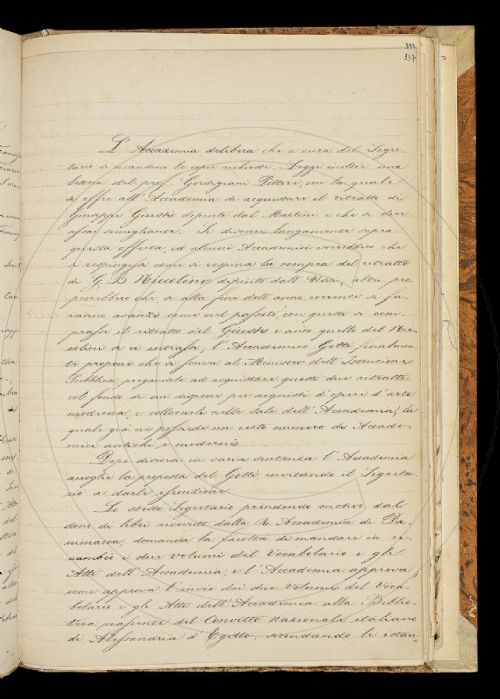 333
337
L'Accademia delibera che a cura del Segre-
tario si mandino le copie richieste. Legge inoltre una
lettera del prof. Vittore, con la quale
si offre all'Accademia di acquistare il ritratto di
Giuseppe Giusti dipinto dal Martini e che si dice
assai somigliante. Si discute lungamente sopra
questa offerta, ed alcuni Accademici vorrebbero che
si respingesse come si respinse la compra del ritratto
di G. B. Niccolini dipinto dall' altri pro-
porrebbero che se alla fine dell'anno corrente si fa-
ranno avanzi come nel passato, con questi si com-
prasse il ritratto del Giusti e anco quello del Nic-
colini se ci entrasse; l'Accademico Gotti finalmen-
te propone che si scriva al Ministro dell'Istruzione
Pubblica pregandolo ad acquistare questi due ritratti
col fondo di cui dispone per acquisti d'opere d'arte
moderna, e collocarli nelle Sale dell'Accademia, la
quale già ne possiede un certo numero di Accade-
mici antichi e moderni.
Dopo discorsi in varia sentenza l'Accademia
accoglie la proposta del Gotti, invitando il Segreta-
rio a darle esecuzione.
Lo stesso Segretario prendendo motivo dal
dono di libri ricevuti dalla R. Accademia di Da-
nimarca, domanda la facoltà di mandare in ri-
cambio i due volumi del Vocabolario e gli
Atti dell'Accademia, e l'Accademia approva;
come approva l'invio dei due Volumi del Voca-
bolario e gli Atti dell'Accademia alla Biblio-
teca nascente del Convitto Nazionale italiano
di Alessandria d'Egitto, secondando le istan-